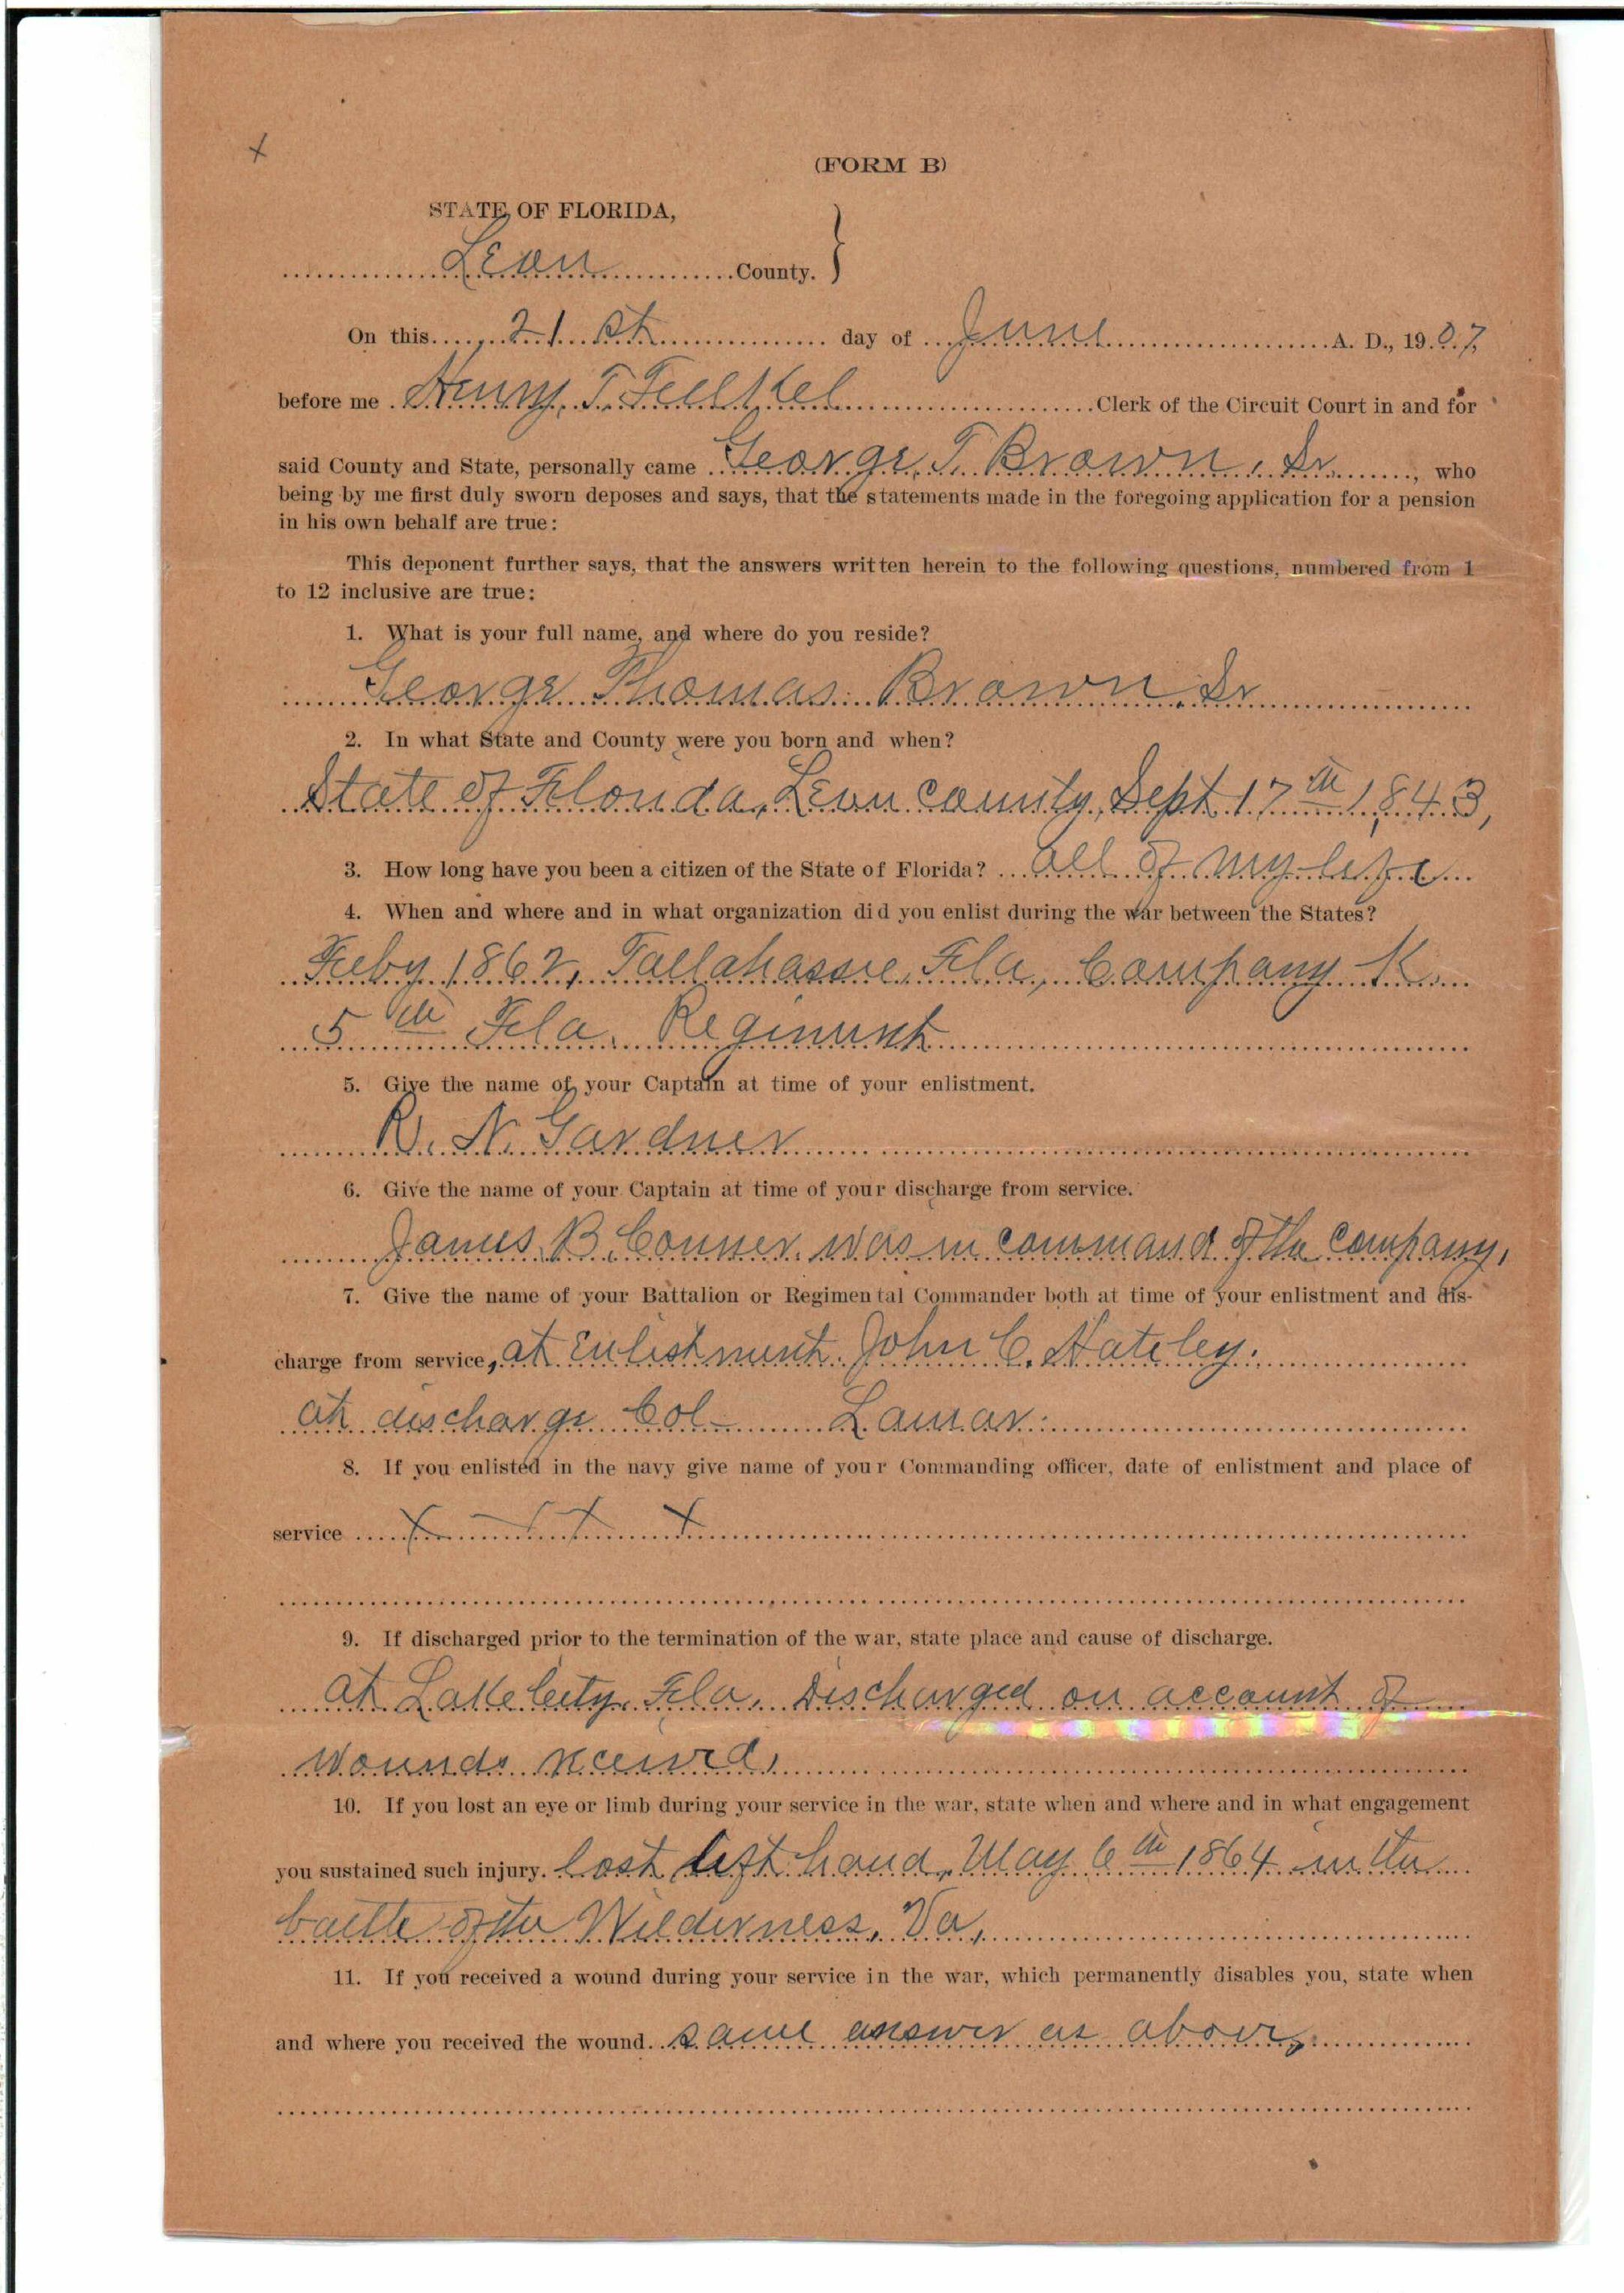 x
(FORM B)
STATE OF FLORIDA,
Leon County.
On this 21st day of June A. D., 1907,
before me Henry T. Felkel Clerk of the Circuit Court in and for
said County and State, personally came George T. Brown, Sr., who
being by me first duly sworn deposes and says, that the statements made in the foregoing application for a pension
in his own behalf are true:
This deponent further says, that the answers written herein to the following questions, numbered from 1
to 12 inclusive are true:
1. What is your full name, and where do you reside?
George Thomas Brown, Sr
2. In what State and County were you born and when?
State of Florida, Leon County, Sept. 17th 1843,
3. How long have you been a citizen of the State of Florida? all of my life
4. When and where and in what organization did you enlist during the war between the States?
Feby 1862, Tallahassee, Fla, Company K
5th Fla. Regiment
5. Give the name of your Captain at time of your enlistment.
R. N. Gardner
6. Give the name of your Captain at time of your discharge from service.
James B. Conner was in command of the Company,
7. Give the name of your Battalion or Regimental Commander both at time of your enlistment and dis-
charge from service, at Enlistment John C. Hateley.
at discharge Col- Lamar.
8. If you enlisted in the navy give name of your Commanding officer, date of enlistment and place of
service x x x
9. If discharged prior to the termination of the war, state place and cause of discharge.
at Lake City, Fla. Discharged on account of
wounds received,
10. If you lost an eye or limb during your service in the war, state when and where and in what engagement
you sustained such injury. lost left hand, May 6th 1864 in the
battle of the Wilderness, Va,
11. If you received a wound during your service in the war, which permanently disables you, state when
and where you received the wound. same answer as above,